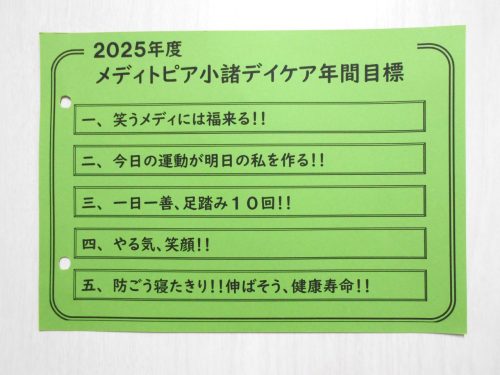 2025年度
メディトピア小諸デイケア年間目標
一、笑うメディには福来る!!
二、今日の運動が明日の私を作る!!
三、一日一善、足踏み10回!!
四、やる気、笑顔!!
五、防ごう寝たきり!!伸ばそう、健康寿命!!